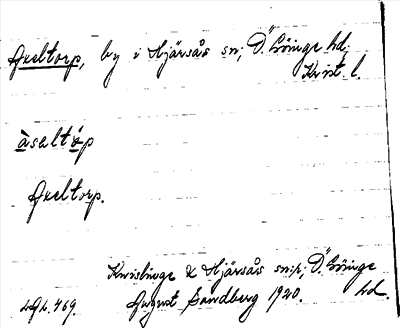 Axeltorp, by i Hjärsås sn; Ö. Göinge hd;
Krist. l.
àsaltǻp
Axeltorp.
Knislinge & Hjärsås snr; Ö. Göinge
August Sandberg 1920. hd.